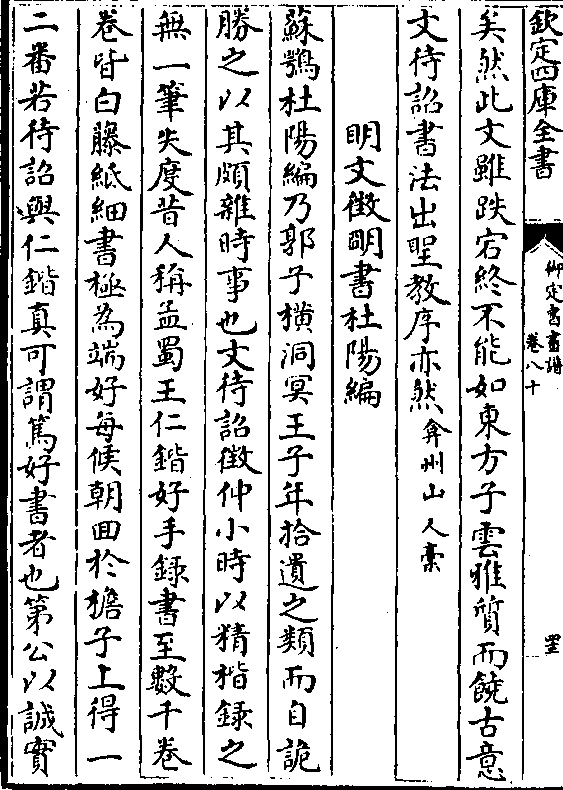 欽定四庫全書
御定書畫譜
卷八十
矣然此文雖跌宕終不能如東方子雲雅質而饒古意
文待詔書法出聖教序亦然弇州山人稾
明文徵明書杜陽編
蘇鶚杜陽編乃郭子橫洞冥王子年拾遺之類而自詭
勝之以其頗雜時事也文待詔徵仲小時以精楷錄之
無一筆失度昔人稱孟蜀王仁鍇好手錄書至數千卷
卷皆白藤紙細書極為端好每候朝回於檐子上得一
二番若待詔與仁鍇真可謂篤好書者也第公以誠實